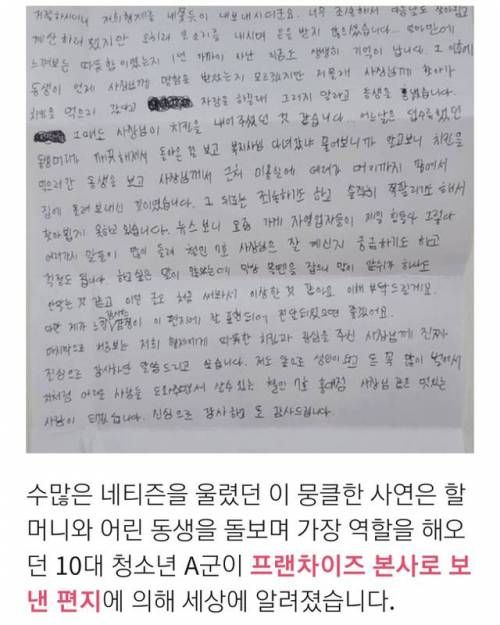 거절하시더니 저희 형제를 내쫓듯이 내보내시더군요. 너무 죄송해서 다음날도 찾아뵙고
계산하려 했지만 오히려 큰소리를 내시며 돈을 받지 않으셨습니다.
느껴본 따뜻함이었기에 1년 가까이 지난 지금도 생생히 기억이 납니다. 그 이후에
동생이 언제 사장님께 명함을 받았는지 모르겠지만 저 몰래 사장님께 찾아가
치킨을 먹으러 갔다고 자랑을 하길래 그러지 말라고 동생을
그때도 사장님이 치킨을 내어주셨던 것 같습니다. 어느날은 덥수룩했던
동생 머리가 깨끗해져서 돌아온 걸 보고 복지사님 다녀갔냐 물어보니까 알고보니 치킨을
먹으러 간 동생을 보고 사장님께서 근처 미용실에 데려가 머리까지 깎여서
집에 돌려보내신 것이었습니다. 그 뒤로는 죄송하기도 하고 솔직히 쪽팔리기도 해서
찾아뵙지 못하고 있습니다. 뉴스 보니 요즘 가게 자영업자들이 제일 힘들다 그렇다
여러가지 말들이 많이 들려 철인 7호 사장님은 잘 계신지 궁금하기도 하고
걱정도 됩니다. 하고 싶은 말이 많았는데 막상 볼펜을 잡으니 말이 앞뒤가
안 맞는 것 같고 이런 글도 처음 써봐서 이상한 것 같아요. 이해 부탁드릴게요.
다만 제가 느꼈던 감사의 감정이 이 편지에 잘 표현되어 전달되었으면 좋겠어요.
마지막으로 처음 보는 저희 형제에게 따뜻한 치킨과 관심을 주신 사장님께 진짜
진심으로 감사하단 말씀 드리고 싶습니다. 저도 앞으로 성인이 되고 돈 꼭 많이 벌어서
저처럼 어려운 사람들 도와주면서 살 수 있는 철인 7호 홍대점 사장님 같은 멋있는
사람이 되겠습니다. 진심으로 감사하고 또 감사드립니다.
수많은 네티즌을 울렸던 이 뭉클한 사연은 할
머니와 어린 동생을 돌보며 가장 역할을 해오
던 10대 청소년 A군이 프랜차이즈 본사로 보
낸 편지에 의해 세상에 알려졌습니다.